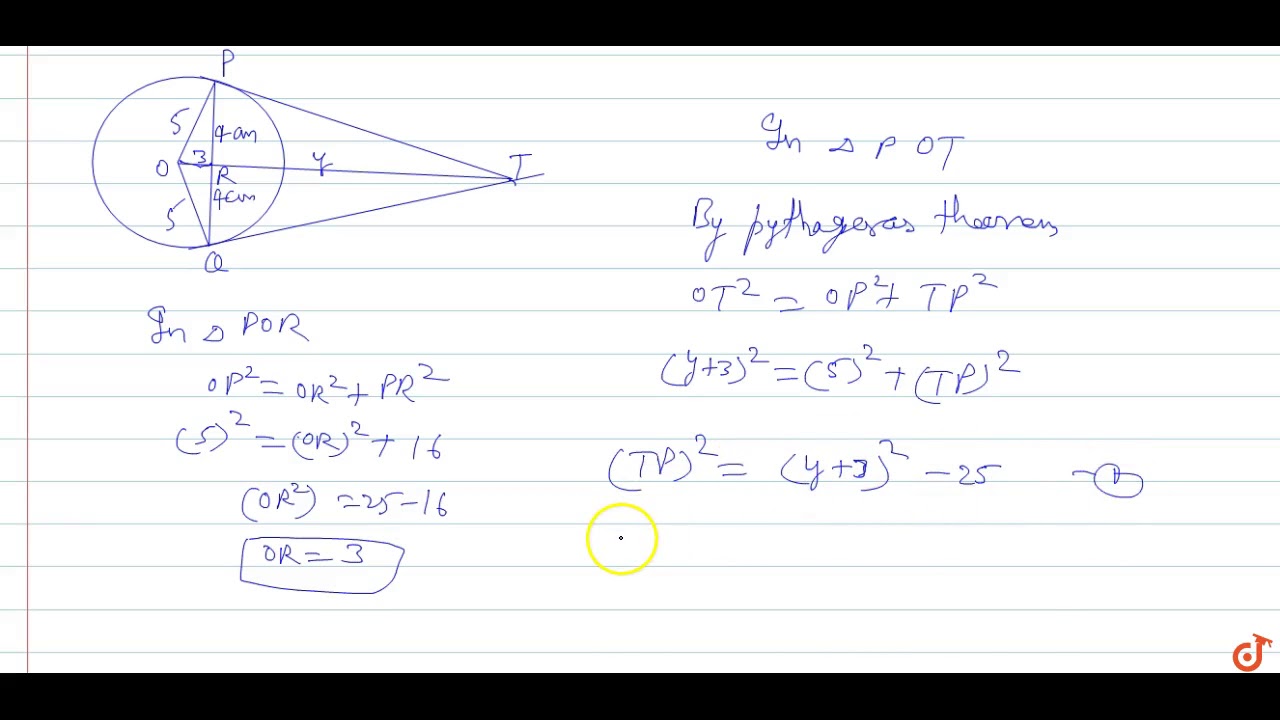 P
5
4cm
O
3
R
y
T
5
4cm
Q
In △ POR
OP² = OR² + PR²
(5)² = (OR)² + 16
(OR²) = 25 - 16
OR = 3
In △ POT
By pythageras theorem
OT² = OP² + TP²
(y+3)² = (5)² + (TP)²
(TP)² = (y+3)² - 25 - ①